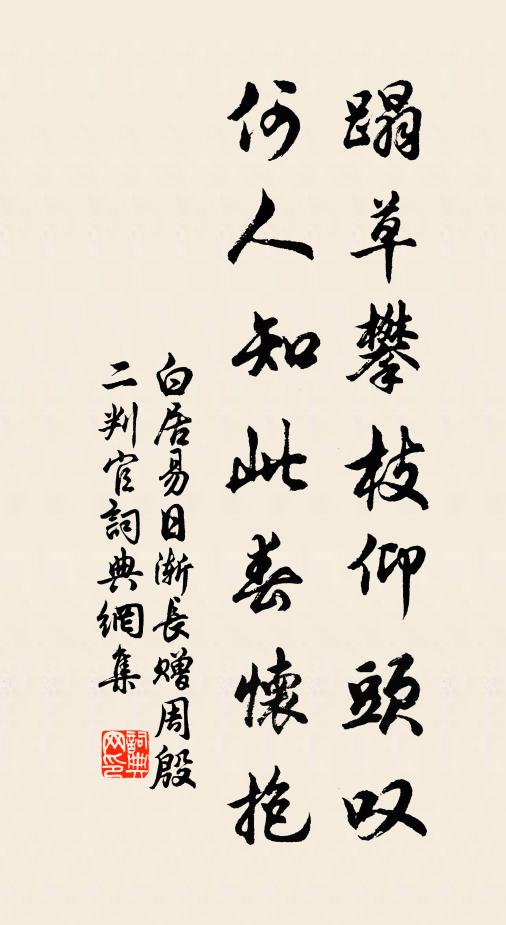 蹋草攀枝仰頭叹
何人知此春懷抱
白居易日漸長赠周殷
二判官詞典網集
詞典
网印